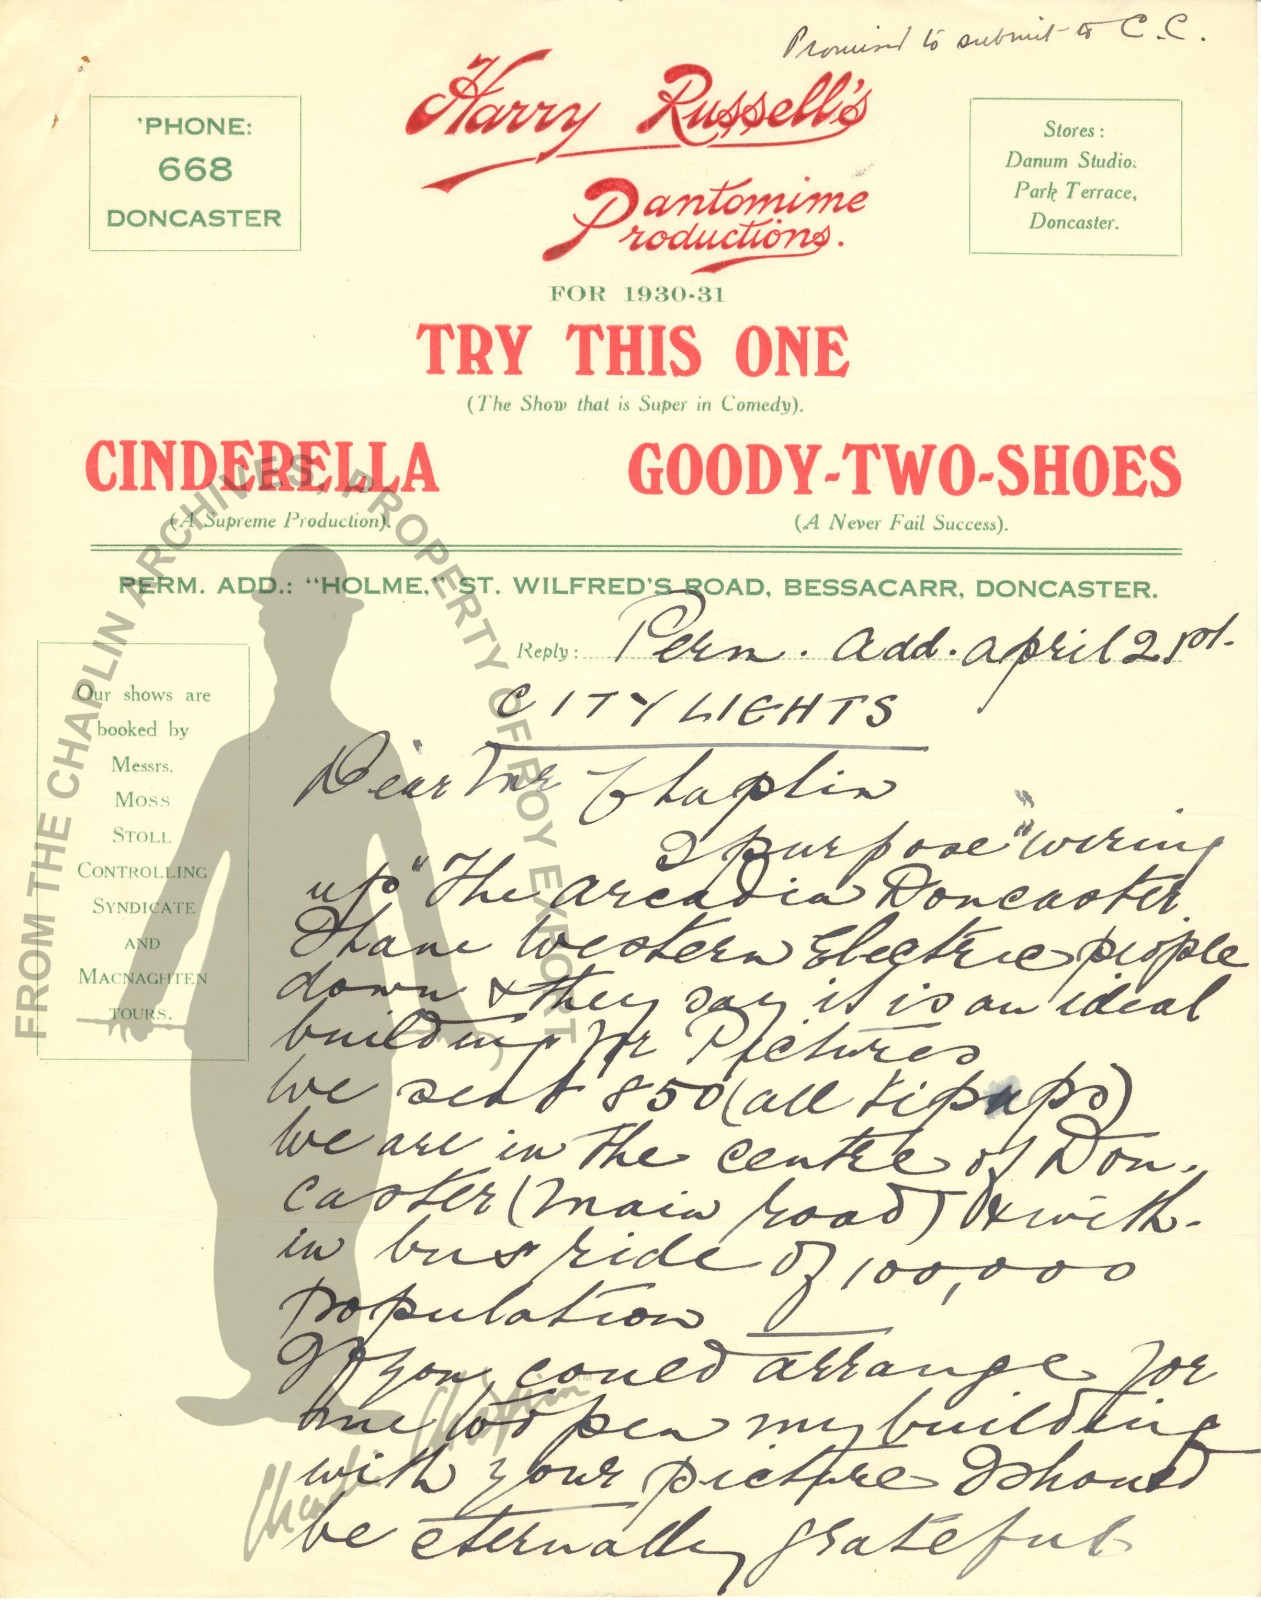 Promised to submit to C.C.
'PHONE:
668
DONCASTER
Harry Russell's
Pantomime
Productions.
Stores:
Danum Studio.
Park Terrace,
Doncaster.
FOR 1930-31
TRY THIS ONE
(The Show that is Super in Comedy).
CINDERELLA
(A Supreme Production).
GOODY-TWO-SHOES
(A Never Fail Success).
PERM. ADD.: "HOLME," ST. WILFRED'S ROAD, BESSACARR, DONCASTER.
Our shows are
booked by
Messrs.
MOSS
STOLL
CONTROLLING
SYNDICATE
AND
MACNAGHTEN
TOURS.
Reply: Perm. Add. April 21st.
CITY LIGHTS
Dear Mr Chaplin
I purpose "wiring
up" The Arcadia Doncaster
I have Western Electric people
down & they say it is an ideal
building for Pictures
We seat 850 (all tip ups)
We are in the centre of Don-
caster (main road) & with-
in bus ride of 100,000
population
If you could arrange for
me to open my building
with your picture I should
be eternally grateful
FROM THE CHAPLIN ARCHIVES, PROPERTY OF ROY EXPORT
Charlie Chaplin™